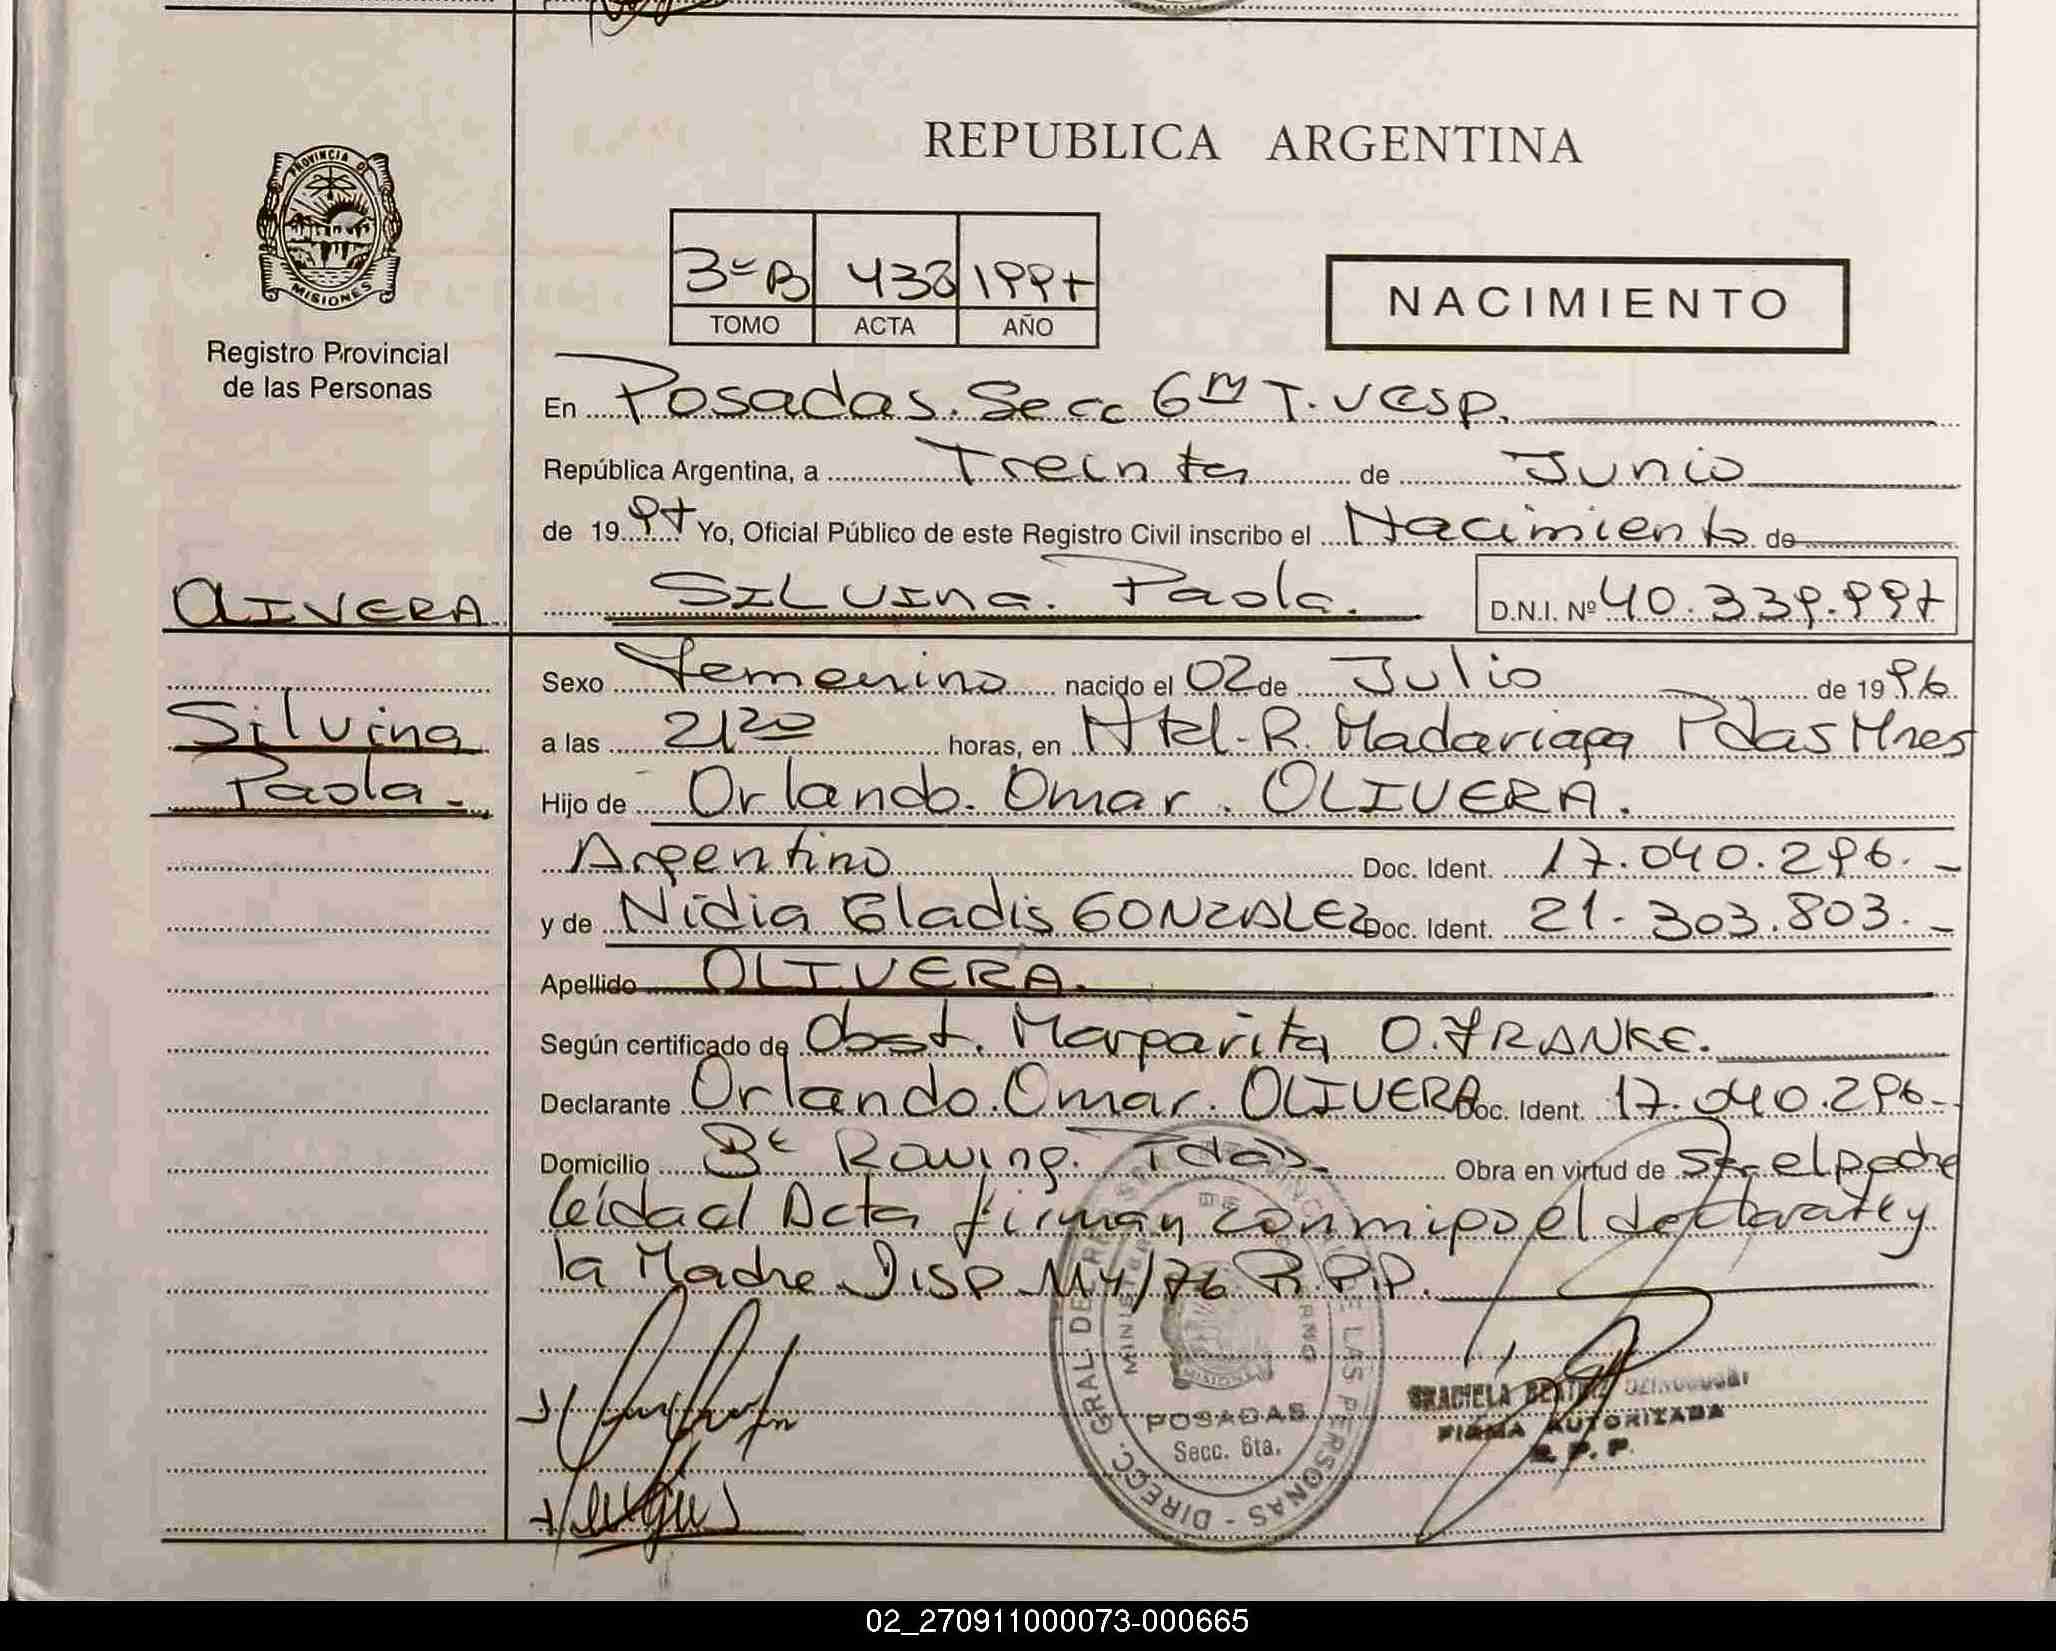 REPUBLICA ARGENTINA
PROVINCIA DE
MISIONES
Registro Provincial
de las Personas
3º B 438 1997
TOMO ACTA AÑO
NACIMIENTO
En Posadas. Secc 6ta T. Vesp.
República Argentina, a Treinta de Junio
de 1997 Yo, Oficial Público de este Registro Civil inscribo el Nacimiento de
OLIVERA
SILVINA. Paola. D.N.I. Nº 40.339.997
Silvina
Paola.-
Sexo Femenino nacido el 02 de Julio de 1996
a las 21 20 horas, en Htal. R. Madariaga Pdas Mnes
Hijo de Orlando. Omar. OLIVERA.
Argentino Doc. Ident. 17.040.296.-
y de Nidia Gladis GONZALEZ Doc. Ident. 21.303.803.-
Apellido OLIVERA.
Según certificado de Obst. Margarita O. FRANKE.
Declarante Orlando. Omar. OLIVERA Doc. Ident. 17.040.296.-
Domicilio Bº Obra en virtud de Ser el padre
leída el Acta firman conmigo el declarante y
la Madre Disp 114/76 R.P.P.
DIRECC. GRAL DE LAS PERSONAS
POSADAS
Secc. 6ta.
GRACIELA BEATRIZ
FIRMA AUTORIZADA
R. P. P.
02_270911000073-000665